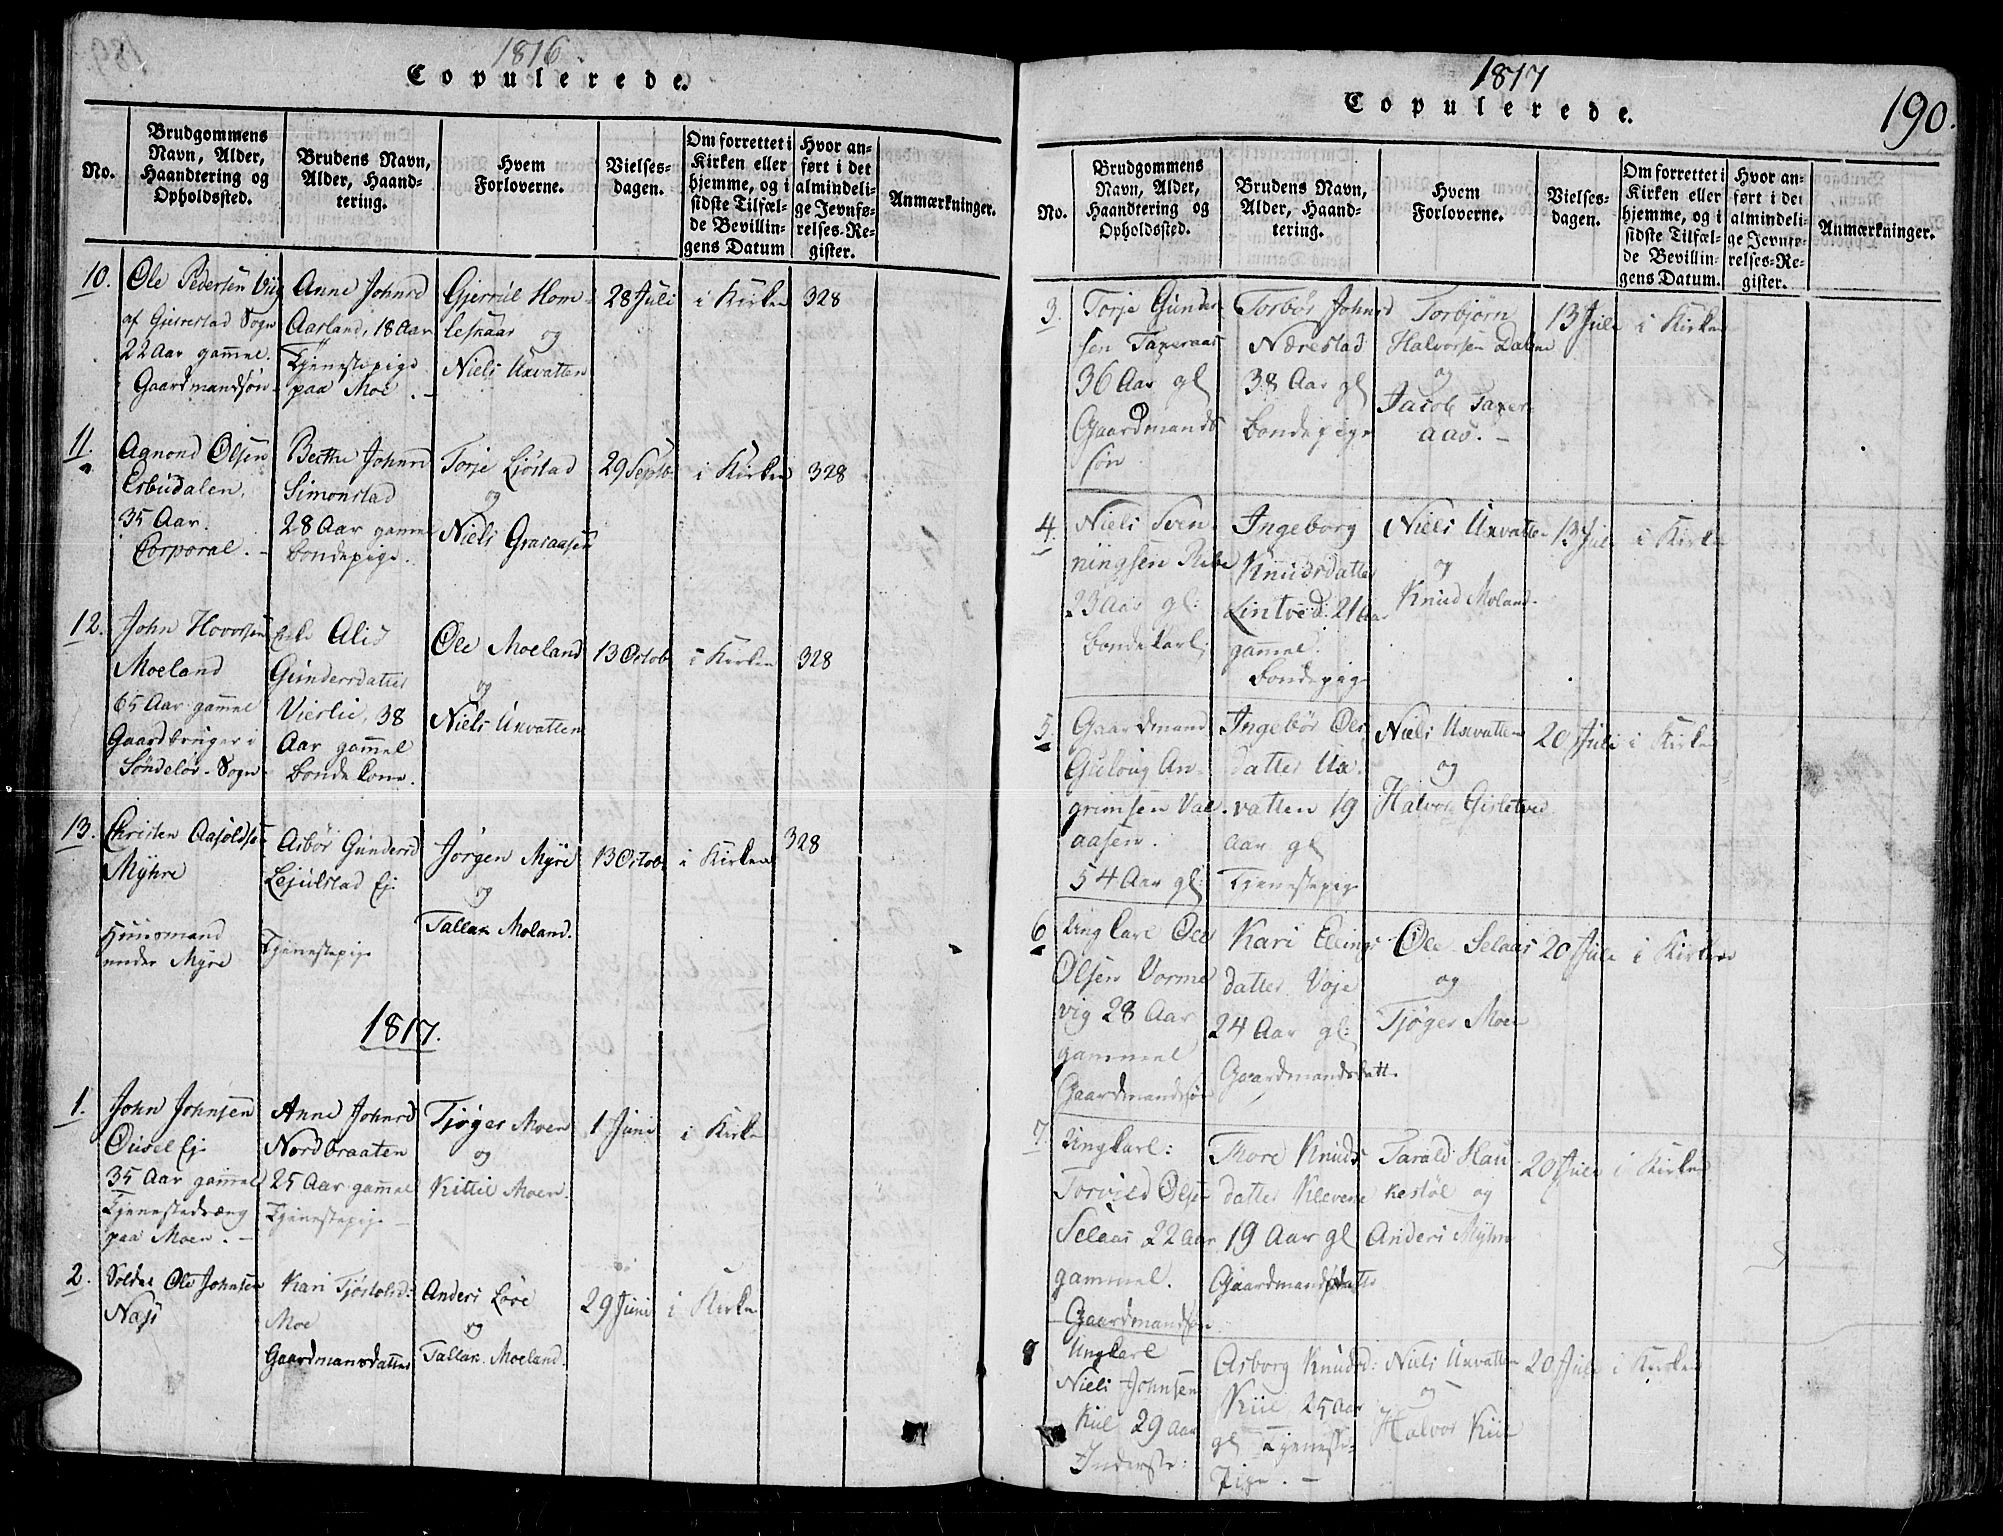 1816.
Copulerede.
No.
Brudgommens
Navn, Alder,
Haandtering og
Opholdssted.
Brudens Navn,
Alder, Haand-
tering.
Hvem
Forloverne.
Vielses-
dagen.
Om forrettet i
Kirken eller
hjemme, og i
sidste Tilfæl-
de Bevillin-
gens Datum
Hvor an-
ført i det
almindeli-
ge Jevnfø-
relses-Re-
gister.
Anmærkninger.
10.
Ole Pedersen
af Gjerrestad Sogn
22 Aar gammel.
Gaardmandsøn
Anne Johnsd
Aasland, 18 Aar
Tjenestepige
paa Moe. -
Gjerrul Hom-
lesnaar og
Niels Uxvatten
28 Juli
i Kirken
328
11.
Aanond Olsen
Esbudalen,
35 Aar.
Corporal. -
Berthe Johnsd
Simonstad
28 Aar gammel
bondepige.
Torje Ljöstad
og
Niels Graraasen
29 Septb
i Kirken
328
12.
John Hovorsen
Moeland
65 Aar gammel
Gaardbruger i
Söndelös-Sogn
Enke Alis
Gundersdatter
Vierlie, 38
Aar gammel
bondekone.
Ole Moeland
og
Niels Uxvatten
13 Octob
i Kirken
328
13.
Christen Aasoldse
Myhre
Huusmand
under Myre
Asbör Gundersd
Lejulstad Ej.
Tjenestepige
Jörgen Myre
og
Tallak Moland.
13 Octob
i Kirken
328
1817.
1.
John Johnsen
Ousel Ej.
35 Aar gammel
Tjenestedræng
paa Moen. -
Anne Johnsd
Nordbraaten
25 Aar gammel
Tjenestepige -
Tjöger Moen
og
Kittil Moen.
1 Juni
i Kirken
2.
Soldat Ole Johnsen
Næs
Kari Tjöstolsd:
Moe
Gaardmansdatter
Anders Löve
og
Tallak Moeland.
29 Juni
i Kirken
1817
Copulerede.
190.
No.
Brudgommens
Navn, Alder,
Haandtering og
Opholdssted.
Brudens Navn,
Alder, Haand-
tering.
Hvem
Forloverne.
Vielses-
dagen.
Om forrettet i
Kirken eller
hjemme, og i
sidste Tilfæl-
de Bevillin-
gens Datum.
Hvor an-
ført i det
almindeli-
ge Jevnfø-
relses-Re-
gister.
Anmærkninger.
3.
Torje Gunder-
sen Taxeraas
36 Aar gl
Gaardmands
sön
Torbör Johnsd
Nærestad
38 Aar gl
bondepige
Torbjörn
Halvorsen Dalene
og
Jacob Taxer-
aas. -
13 Juli
i Kirken
4.
Niels Sven-
ningsen Ribe
23 Aar gl:
bondekarl;
Ingeborg
Knudsdatter
Lintved: 21 Aar
gammel.
bondepig
Niels Uxvatten
og
Knud Moland.
13 Juli
i Kirken
5.
Gaardmand
Guloug An-
grimsen Val-
aasen.
54 Aar gl:
Ingebör Ols
datter Ux-
vatten 19
Aar gl
Tjenestepige
Niels Uxvatten
og
Halvor Gisletved
20 Juli
i Kirken
6
Ungkarl Ole
Olsen Vorme
vig 28 Aar
gammel
Gaardmandsön
Kari Ellings
datter Voje
24 Aar gl:
Gaardmandsdatt.
Ole Selaas
og
Tjöger Moen
20 Juli
i Kirken
7.
Ungkarl:
Torvild Olsen
Selaas 22 Aar
gammel.
Gaardmandsön
Thore Knuds
datter Klevene
19 Aar gl
Gaardmandsdatter
Tarald Hau-
kestöl og
Anders Myhre
20 Juli
i Kirken
8
Ungkarl
Niels Johnsen
Kiil 29 Aar
Inderste:
Asborg Knudsd:
Kiil 25 Aar
gl Tjeneste-
Pige. -
Niels Uxvatten
og
Halvor Kiil
20 Juli
i Kirken